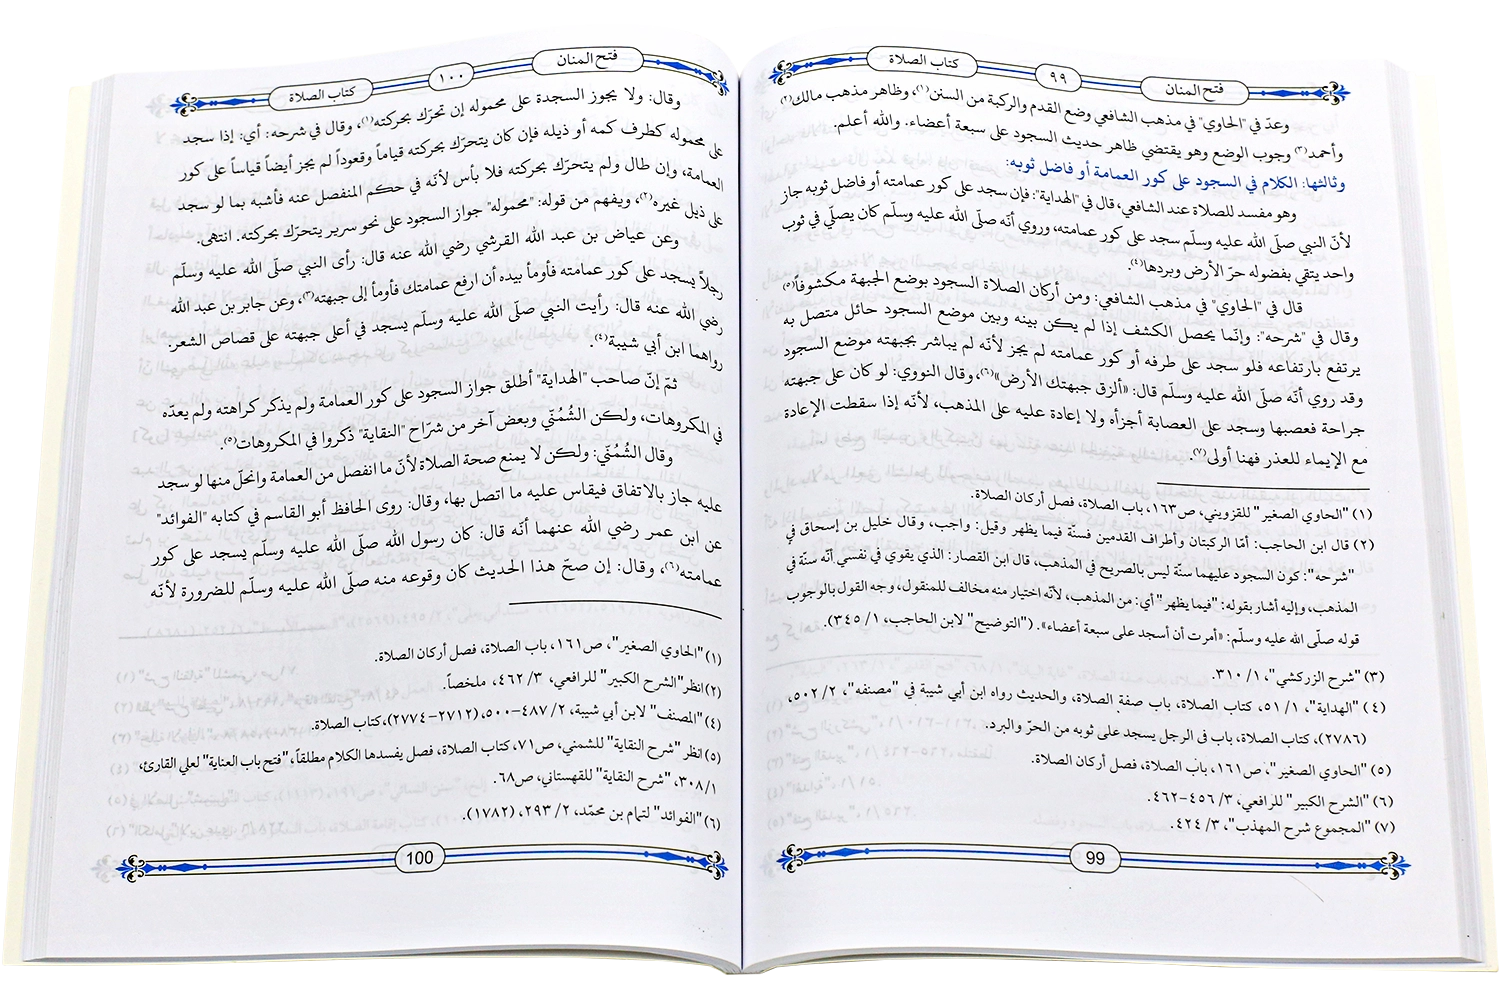 فتح المنان
٩٩
كتاب الصلاة
وعدّ في "الحاوي" في مذهب الشافعي وضع القدم والركبة من السنن(١)، وظاهر مذهب مالك(٢)
وأحمد(٣) وجوب الوضع وهو يقتضي ظاهر حديث السجود على سبعة أعضاء. والله أعلم.
وثالثها: الكلام في السجود على كور العمامة أو فاضل ثوبه:
وهو مفسد للصلاة عند الشافعي، قال في "الهداية": فإن سجد على كور عمامته أو فاضل ثوبه جاز
لأنّ النبي صلّى الله عليه وسلّم سجد على كور عمامته، وروي أنّه صلّى الله عليه وسلّم كان يصلّي في ثوب
واحد يتقي بفضوله حرّ الأرض وبردها(٤).
قال في "الحاوي" في مذهب الشافعي: ومن أركان الصلاة السجود بوضع الجبهة مكشوفاً(٥)
وقال في "شرحه": وإنّما يحصل الكشف إذا لم يكن بينه وبين موضع السجود حائل متصل به
يرتفع بارتفاعه فلو سجد على طرفه أو كور عمامته لم يجز لأنّه لم يباشر بجبهته موضع السجود
وقد روي أنّه صلّى الله عليه وسلّم قال: «ألزق جبهتك الأرض»(٦)، وقال النووي: لو كان على جبهته
جراحة فعصبها وسجد على العصابة أجزأه ولا إعادة عليه على المذهب، لأنّه إذا سقطت الإعادة
مع الإيماء للعذر فهنا أولى(٧).
(١) "الحاوي الصغير" للقزويني، ص١٦٣، باب الصلاة، فصل أركان الصلاة.
(٢) قال ابن الحاجب: أمّا الركبتان وأطراف القدمين فسنّة فيما يظهر وقيل: واجب، وقال خليل بن إسحاق في
"شرحه": كون السجود عليهما سنّة ليس بالصريح في المذهب، قال ابن القصار: الذي يقوي في نفسي أنّه سنّة في
المذهب، وإليه أشار بقوله: "فيما يظهر" أي: من المذهب، لأنّه اختيار منه مخالف للمنقول، وجه القول بالوجوب
قوله صلّى الله عليه وسلّم: «أمرت أن أسجد على سبعة أعضاء». ("التوضيح" لابن الحاجب، ١/ ٣٤٥).
(٣) "شرح الزركشي"، ١/ ٣١٠.
(٤) "الهداية"، ١/ ٥١، كتاب الصلاة، باب صفة الصلاة، والحديث رواه ابن أبي شيبة في "مصنفه"، ٢/ ٥٠٢،
(٢٧٨٦)، كتاب الصلاة، باب فى الرجل يسجد على ثوبه من الحرّ والبرد.
(٥) "الحاوي الصغير"، ص١٦١، باب الصلاة، فصل أركان الصلاة.
(٦) "الشرح الكبير" للرافعي، ٣/ ٤٥٦-٤٦٢.
(٧) "المجموع شرح المهذب"، ٣/ ٤٢٤.
99
فتح المنان
١٠٠
كتاب الصلاة
وقال: ولا يجوز السجدة على محموله إن تحرّك بحركته(١)، وقال في شرحه: أي: إذا سجد
على محموله كطرف كمه أو ذيله فإن كان يتحرّك بحركته قياماً وقعوداً لم يجز أيضاً قياساً على كور
العمامة، وإن طال ولم يتحرّك بحركته فلا بأس لأنّه في حكم المنفصل عنه فأشبه بما لو سجد
على ذيل غيره(٢)، ويفهم من قوله: "محموله" جواز السجود على نحو سرير يتحرّك بحركته. انتهى.
وعن عياض بن عبد الله القرشي رضي الله عنه قال: رأى النبي صلّى الله عليه وسلّم
رجلاً يسجد على كور عمامته فأومأ بيده أن ارفع عمامتك فأومأ إلى جبهته(٣)، وعن جابر بن عبد الله
رضي الله عنه قال: رأيت النبي صلّى الله عليه وسلّم يسجد في أعلى جبهته على قصاص الشعر.
رواهما ابن أبي شيبة(٤).
ثمّ إنّ صاحب "الهداية" أطلق جواز السجود على كور العمامة ولم يذكر كراهته ولم يعدّه
في المكروهات، ولكن الشُمُنّي وبعض آخر من شرّاح "النقاية" ذكروا في المكروهات(٥).
وقال الشُمُنّي: ولكن لا يمنع صحة الصلاة لأنّ ما انفصل من العمامة وانحلّ منها لو سجد
عليه جاز بالاتفاق فيقاس عليه ما اتصل بها، وقال: روى الحافظ أبو القاسم في كتابه "الفوائد"
عن ابن عمر رضي الله عنهما أنّه قال: كان رسول الله صلّى الله عليه وسلّم يسجد على كور
عمامته(٦)، وقال: إن صحّ هذا الحديث كان وقوعه منه صلّى الله عليه وسلّم للضرورة لأنّه
(١) "الحاوي الصغير"، ص١٦١، باب الصلاة، فصل أركان الصلاة.
(٢) انظر "الشرح الكبير" للرافعي، ٣/ ٤٦٢، ملخصاً.
(٤) "المصنف" لابن أبي شيبة، ٢/ ٤٨٧-٥٠٠، (٢٧١٢-٢٧٧٤)، كتاب الصلاة.
(٥) انظر "شرح النقاية" للشمني، ص٧١، كتاب الصلاة، فصل يفسدها الكلام مطلقاً، "فتح باب العناية" لعلي القارئ،
١/ ٣٠٨، "شرح النقاية" للقهستاني، ص٦٨.
(٦) "الفوائد" لتمام بن محمّد، ٢/ ٢٩٣، (١٧٨٢).
100